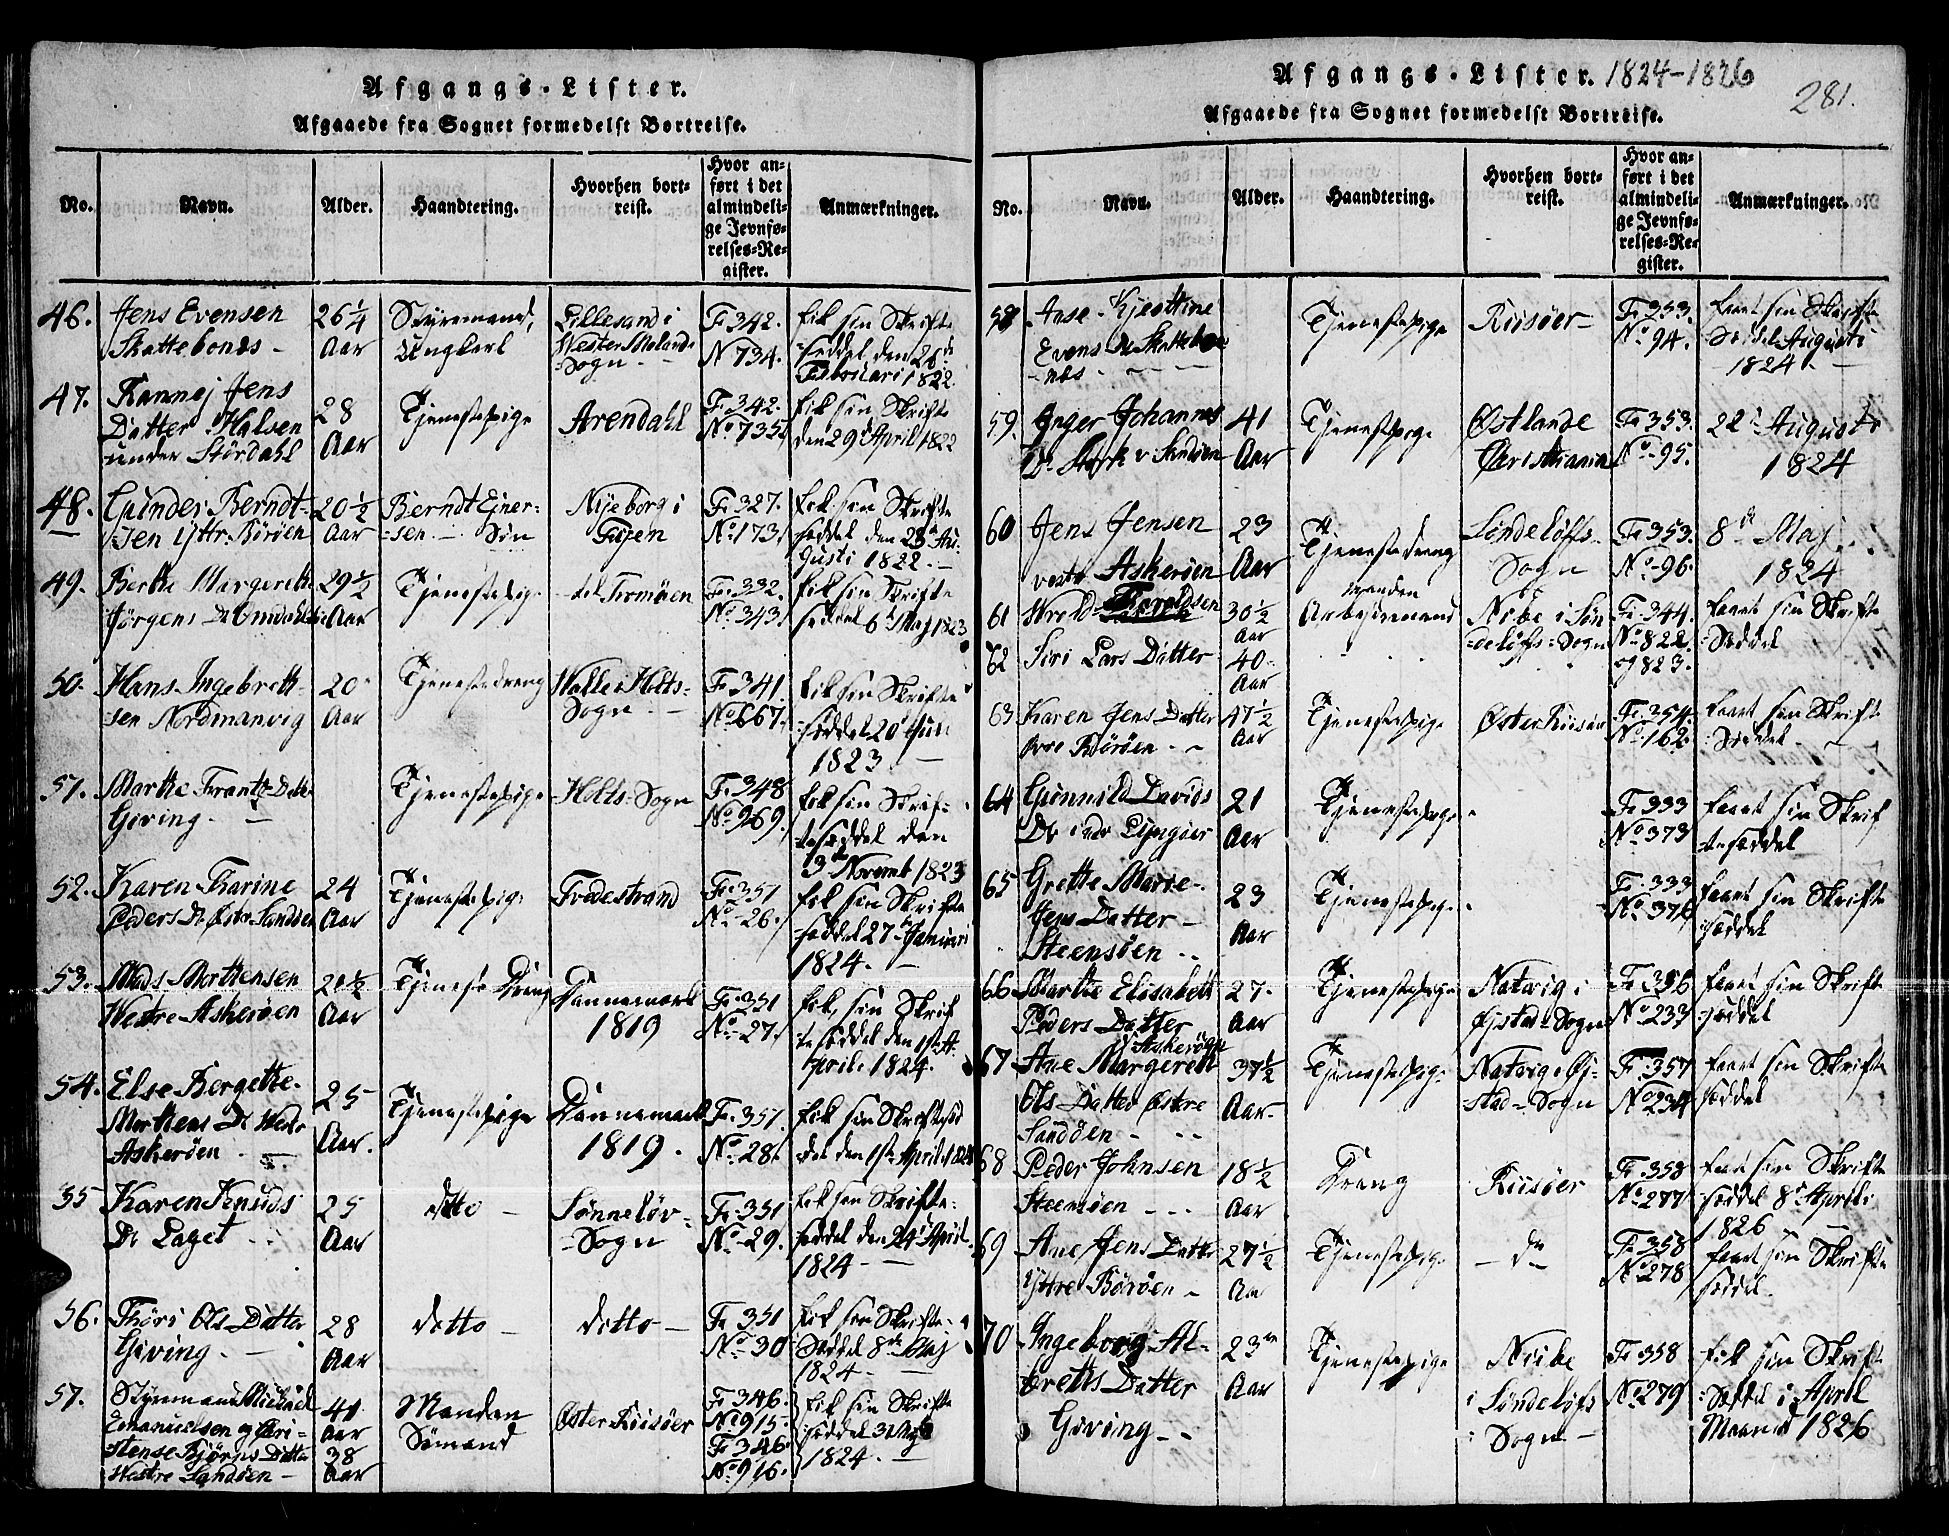 Afgangs-Lister.
Afgaaede fra Sognet formedelst Bortreise.
No.
Navn.
Alder.
Haandtering.
Hvorhen bort-
reist.
Hvor an-
ført i det
almindeli-
ge Jevnfø-
relses-Re-
gister.
Anmærkninger.
46.
Jens Evensen
Skattebonds -
26 1/4
Aar
Styremand,
Ungkarl
Lillesand i
Wester Molands
Sogn. -
F. 342.
N 734.
fik sin Skrifte
seddel den 28de
Februari 1822.
47.
Rannej Jens
Datter Halsen
under Stördahl
28
Aar
Tjenestepige
Arendahl
F. 342.
No 735.
fik sin Skrifte
den 29de April 1822
48.
Gunder Berndt-
sen Yttr. Börøen
20 1/2
Aar
Berndt Ejner-
sen - Søn
Nyeborg i
Fyen
F. 327.
No. 173.
fik sin Skrifte
seddel den 28de Au-
gusti 1822. -
49.
Berthe Margrethe
Jörgens Dr
29 1/2
Aar
Tjenestepige
til Tromöen
F. 332.
No. 343.
fik sin Skrifte
seddel 6te Maj 1823
50.
Hans Ingebrett-
sen Nordmanvig
20
Aar
Tjenestedreng
Walle i Holts-
Sogn. -
F. 341.
No. 667.
fik sin Skrifte
seddel 20de Juni
1823. -
51.
Marthe Frantz Datt.
Giving. -
Tjenestepige
Holts-Sogn
F. 348
No. 969.
fik sin Skrif-
teseddel den
3de Novemb 1823
52.
Karen Karine
Peders Dr Østr. Sandøen
24
Aar
Tjenestepige
Tvedestrand
F. 351
No. 26.
fik sin Skrifte
seddel 27de Januari
1824. -
53.
Mads Morttensen
Westre Askerøen
21 1/2
Aar
Tjeneste Dreng
Dannemark
1819
F. 351
No. 27.
fik sin Skrif
teseddel den 1ste A-
pril. 1824.
54.
Else Bergette.
Morttens Dr Westr
Askerøen -
25
Aar.
Tjenestepige
Dannemark
1819.
F. 351.
No. 28.
fik sin Skriftesed
del den 1ste April 1824
55
Karen Knuds
Dr Laget -
25
Aar
ditto -
Sönneløv-
Sogn
F. 351
No. 29.
fik sin Skrifte-
seddel den 24de April
1824 -
56.
Thöri Ols Datter
Giving. -
28
Aar
ditto -
ditto -
F. 351
No. 30
fik sin Skrifte-
Seddel 8de Maj
1824 -
57.
Styrmand Michael
Emanuelsen og Chri-
stense Björns Datter
Westre Sandøen -
41
Aar
38
Aar
Manden
Sömand
Øster Riisöer
F. 346.
No 915.
F. 346.
No. 916.
fik sin Skrifte
seddel 3
1824. -
Afgangs-Lister. 1824-1826
281.
Afgaaede fra Sognet formedelst Bortreise.
No.
Navn.
Alder.
Haandtering.
Hvorhen bort-
reist.
Hvor an-
ført i det
almindeli-
ge Jevnfø-
relses-Re-
gister.
Anmærkninger.
58
Anse Kjesttine
Evens Dr Skattebo
nds - - -
Tjenestepige
Riisöer -
F. 353.
No. 94.
faaet sin Skrifte
Seddel Augusti
1824. -
59.
Inger Johannes
Dr
41
Aar
Tjenestepige
Østlande
Christiania
F. 353.
No. 95.
22de Augusti
1824
60
Jens Jensen
vestr Askerøen
23
Aar
Tjenestedreng
Sönderløffs-
Sogn
F. 353.
No. 96.
8de Maj
1824
61
Wrold Thoroldsen
30 1/2
Aar
manden
Arbejdsmand
Nibe i Søn
deløffs-Sogn
F. 344.
No 822.
og 823.
faaet sin Skrifte
Seddel
62
Siri Lars Datter
40
Aar
63
Karen Jens Datter
Børøen - -
47 1/2
Aar
Tjenestepige
Øster Riisöer
F. 354.
No. 162.
faaet sin Skrifte
Seddel -
64
Gunnild Davids
Dr Lyngöer
21
Aar
Tjenestepige
F. 333
No. 373
faaet sin Skrif
teseddel
65
Grethe Marie-
Jens Datter -
Steensøen -
23
Aar
Tjenestepige
F. 333
No. 376
faaet sin Skrifte
seddel
66
Marthe Elisabeth
Peders Datter
Askerøen
27.
Aar
Tjenestepige
Natvig i
Øjestad-Sogn
F. 356
No. 233
faaet sin Skrifte
seddel
67
Ane Margereth
Ols Datter Østre
Sandøen -
37 1/2
Aar
Tjenestepige
Natvig i Øj-
stad-Sogn
F. 357
No. 234
faaet sin Skrifte
seddel
68
Peder Johnsen
Steensøen - - -
18 1/2
Aar
Dreng
Riisöer
F. 358
No. 277
faaet sin Skrifte
seddel 8de Aprili
1826 -
69
Ane Jens Datter
Yttre Börøen -
27 1/2
Aar
Tjenestepige
- do -
F. 358
No. 278
faaet sin Skrifte
seddel.
70
Ingeborg Al-
bretts Datter
Giving - -
23
Aar
Tjenestepige
Niibe
i Söndeløffs
Sogn -
F. 358
No. 279
fik sin Skrift
Seddel i April
Maaned 1826